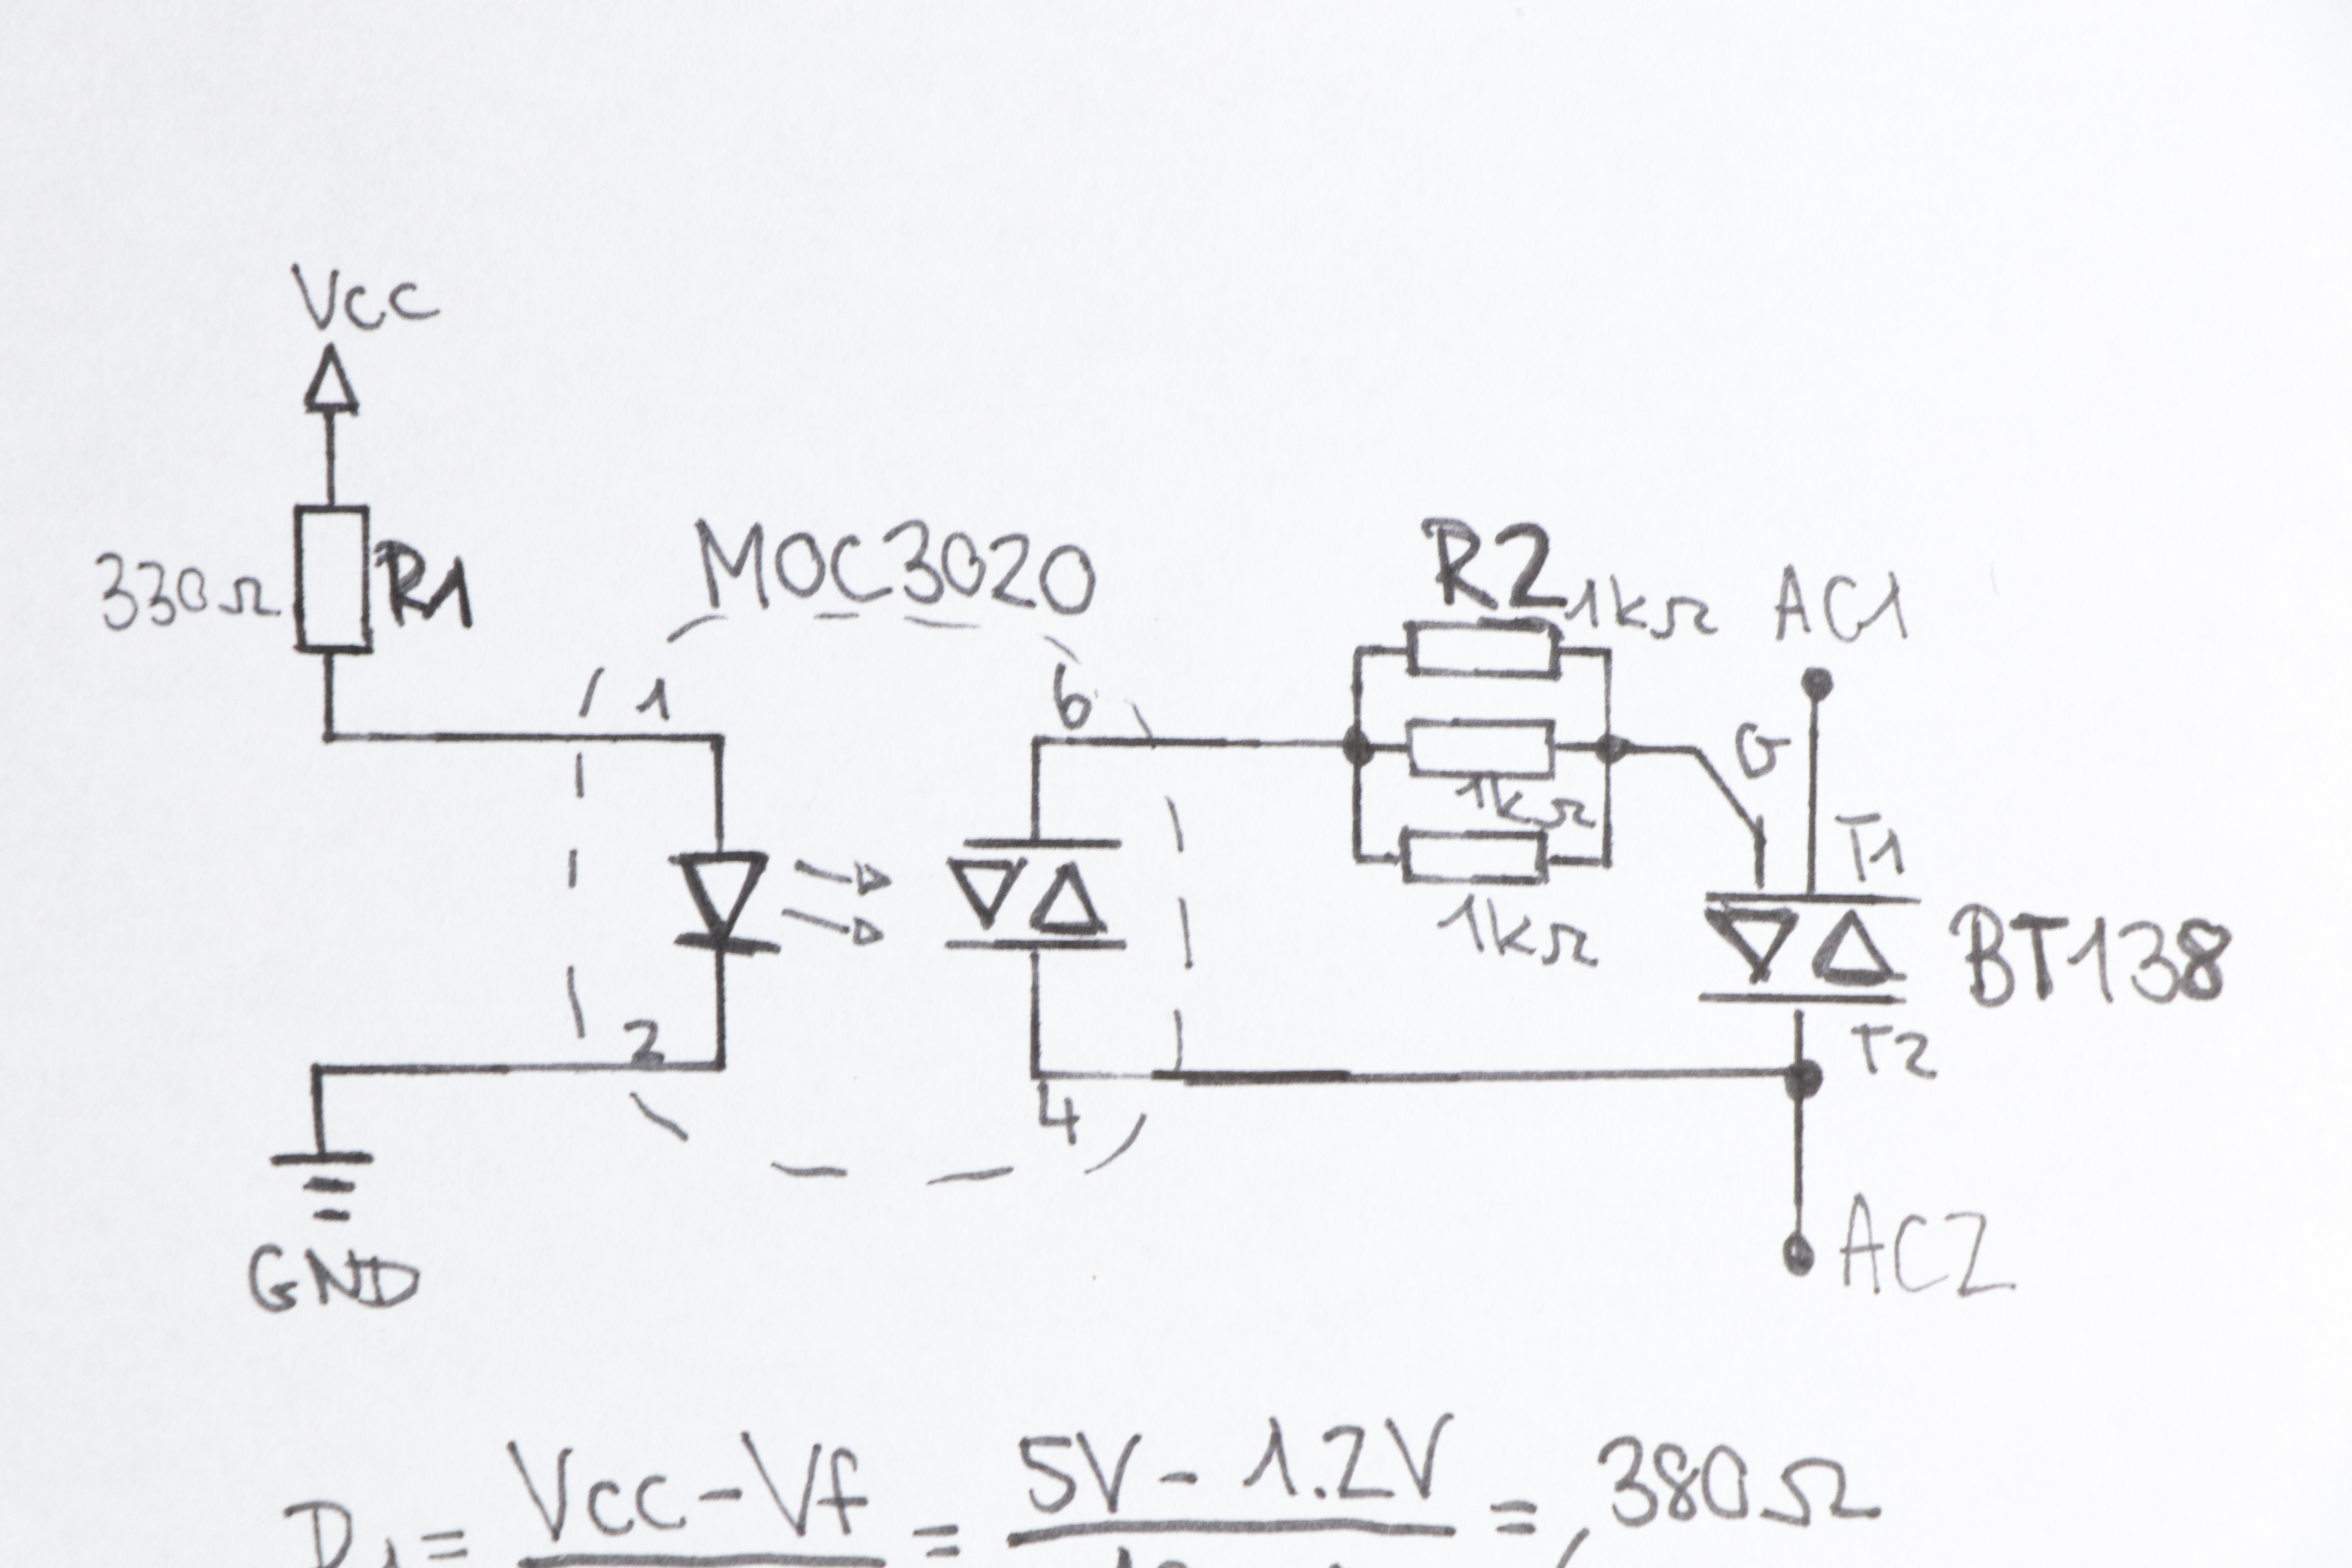 Vcc
330Ω R1
MOC3020
1
2
6
4
R2
1kΩ
1kΩ
1kΩ
AC1
G
T1
BT138
T2
AC2
GND
R1 = Vcc - Vf = 5V - 1.2V = 380Ω